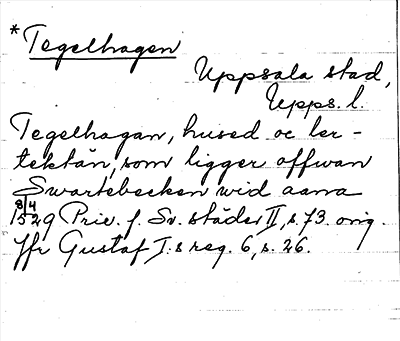 * Tegelhagen
Uppsala stad,
Upps. l.
Tegelhagan, hused oc ler-
tektän, som ligger offwan
Swartebecken wid aana
8/4
1529 Priv. f. Sv. städer II, s. 73. orig.
Jfr Gustaf I:s reg. 6, s. 26.